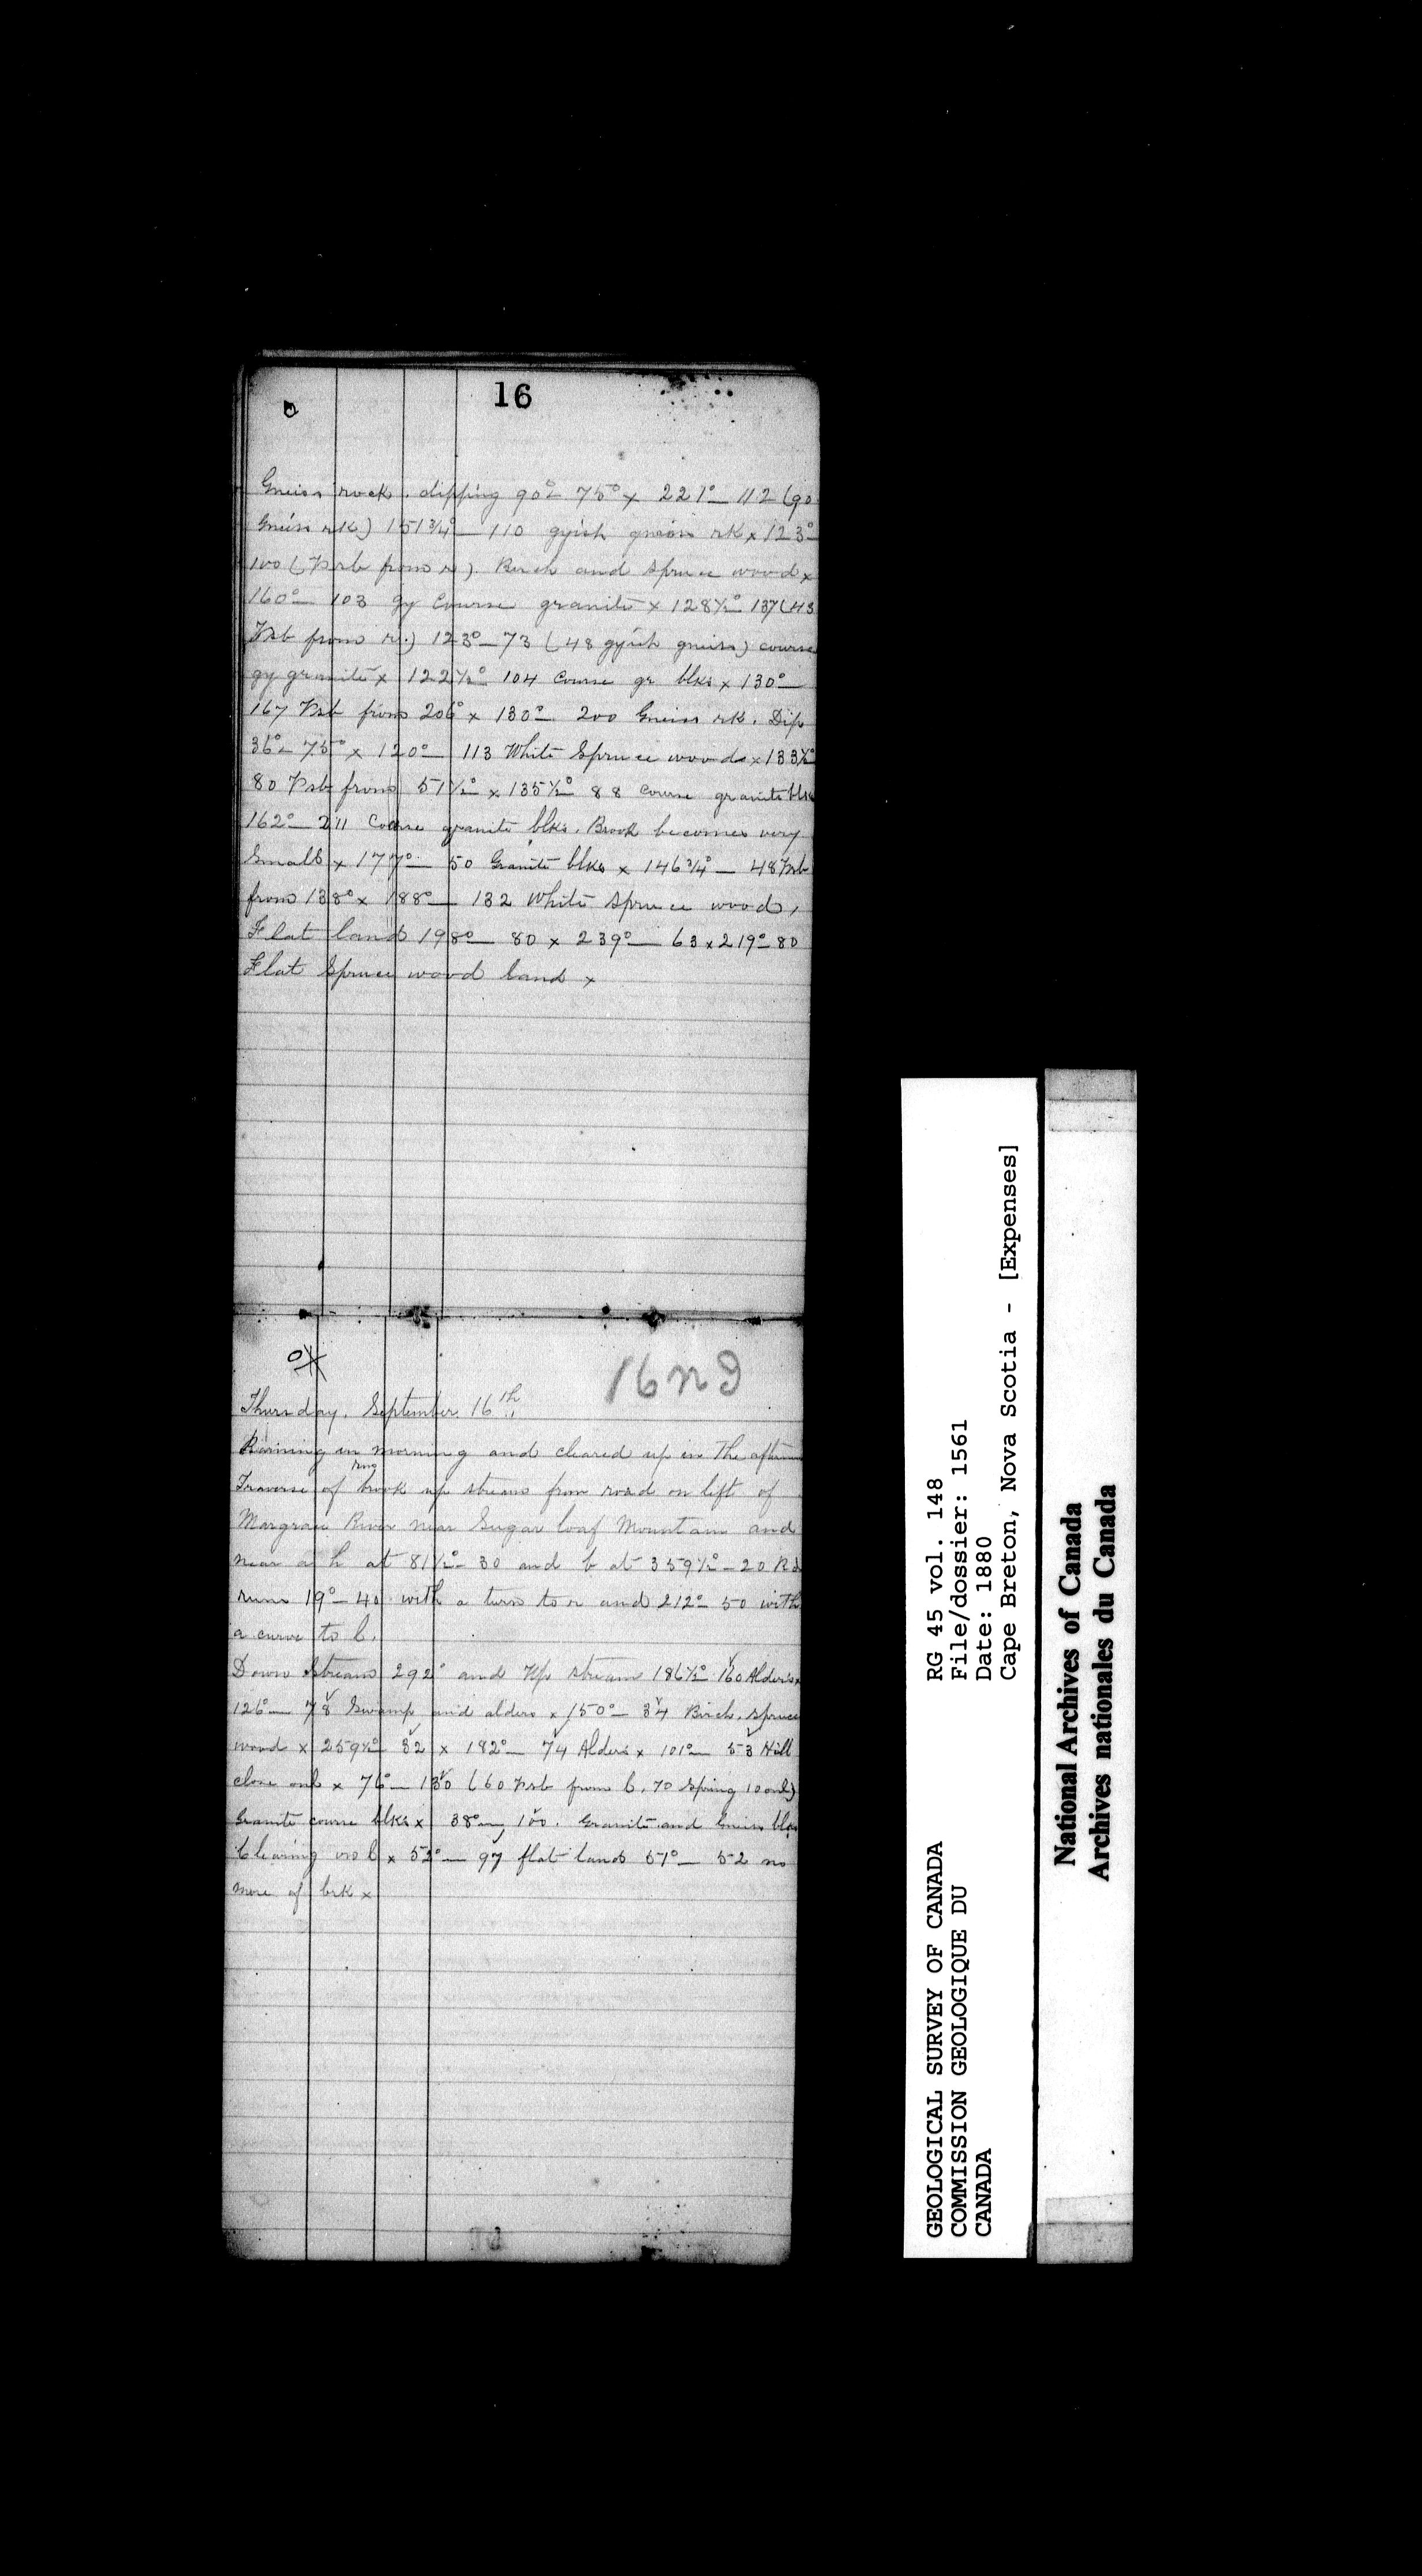 16
Gneiss rock. dipping 90°– 75° x 221°– 112 (90
Gneiss rk) 151¾°– 110 gyish gneiss rk x 123°–
100 (Brb from r). Birch and Spruce wood x
160°– 103 gy Course granite x 128½° 137 (43
Brb from r.) 123°– 73 (48 gyish gneiss) course
gy granite x 122½° 104 Course gr blks x 130°–
167 Brb from 206° x 130°– 200 Gneiss rk. Dip
36°– 75° x 120°– 113 White Spruce woods x 133½°
80 Brb from 51½° x 135½° 88 course granite blks
162°– 211 Coarse granite blks. Brook becomes very
Small x 177°– 50 Granite blks x 146¾°– 48 Brb
from 138° x 188°– 132 White Spruce wood,
Flat land 198°– 80 x 239°– 63 x 219° 80
Flat Spruce wood land x
16
Thursday, September 16th
Raining in morning and cleared up in the afternoon
Traverse of brook up stream from road on left of
Margree River near Sugar loaf Mountain and
near a h at 81½°– 30 and b at 359½°– 20 Rd
runs 19°– 40 with a turn to r and 212°– 50 with
a curve to l.
Down Stream 292° and Up stream 186½° 160 Alders x
126°– 78 Swamp and alders x 150°– 34 Birch, spruce
wood x 259½° 32 x 182°– 74 Alders x 101°– 53 Hill
close on l x 76°– 130 (60 Brb from l. 70 Spring 10 on l)
Granite course blks x 38°– 100. Granite and Gneiss blks
Clearing on l x 52°– 97 flat land 51°– 52 no
more of brk x
GEOLOGICAL SURVEY OF CANADA
COMMISSION GEOLOGIQUE DU
CANADA
RG 45 vol. 148
File/dossier: 1561
Date: 1880
Cape Breton, Nova Scotia - [Expenses]
National Archives of Canada
Archives nationales du Canada